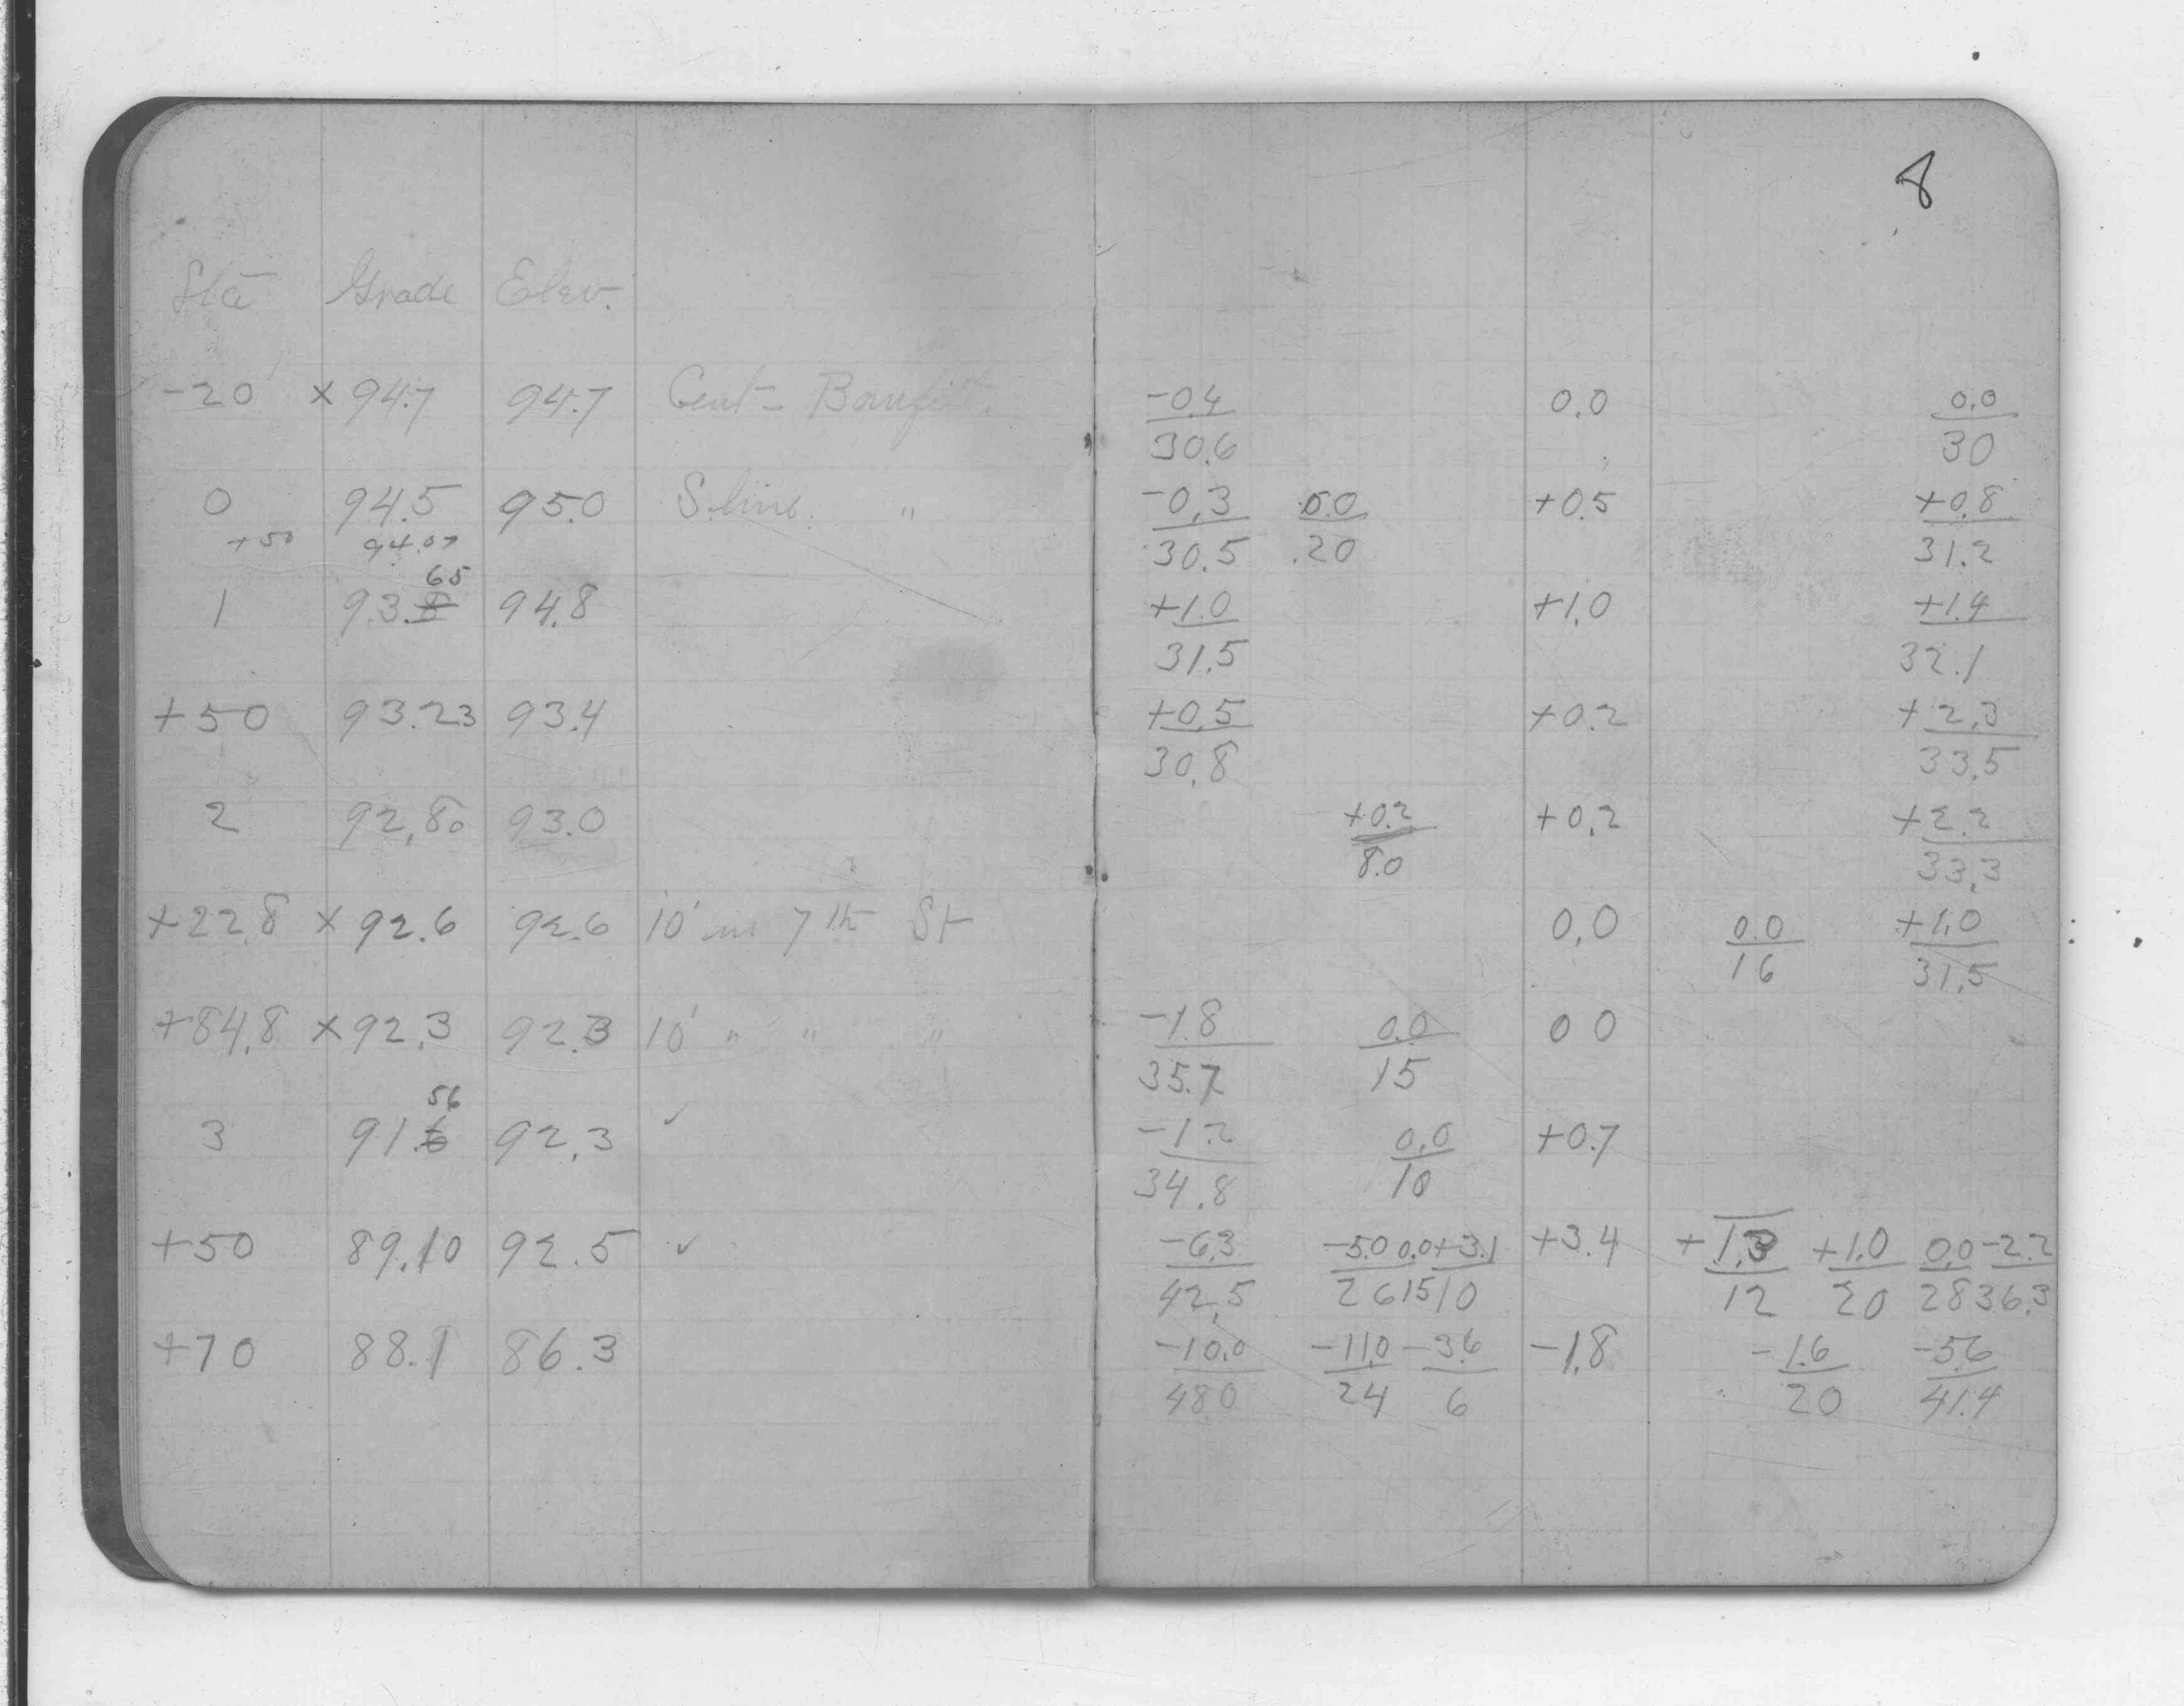 8
Sta Grade Elev.
-20 x 94.7 94.7 Cent- -0.4/30.6 0.0 0.0/30
0 94.5 95.0 S. line. " -0.3/30.5 0.0/20 +0.5 +0.8/31.2
+50 94.07
65
1 93.8 94.8 +1.0/31.5 +1.0 +1.4/32.1
+50 93.23 93.4 +0.5/30.8 +0.2 +2.3/33.5
2 92.80 93.0 +0.2/8.0 +0.2 +2.2/33.3
+22.8 x 92.6 92.6 10' in 7th St 0.0 0.0/16 +1.0/31.5
+84.8 x 92.3 92.3 10' " " " -1.8/35.7 0.0/15 0 0
56
3 91.6 92.3 ✓ -1.2/34.8 0.0/10 +0.7
+50 89.10 92.5 ✓ -6.3/42.5 -5.0/26 0.0/15 +3.1/10 +3.4 +1.3/12 +1.0/20 0.0/28 -2.2/36.3
+70 88.1 86.3 -10.0/48.0 -11.0/24 -3.6/6 -1.8 -1.6/20 -5.6/41.4